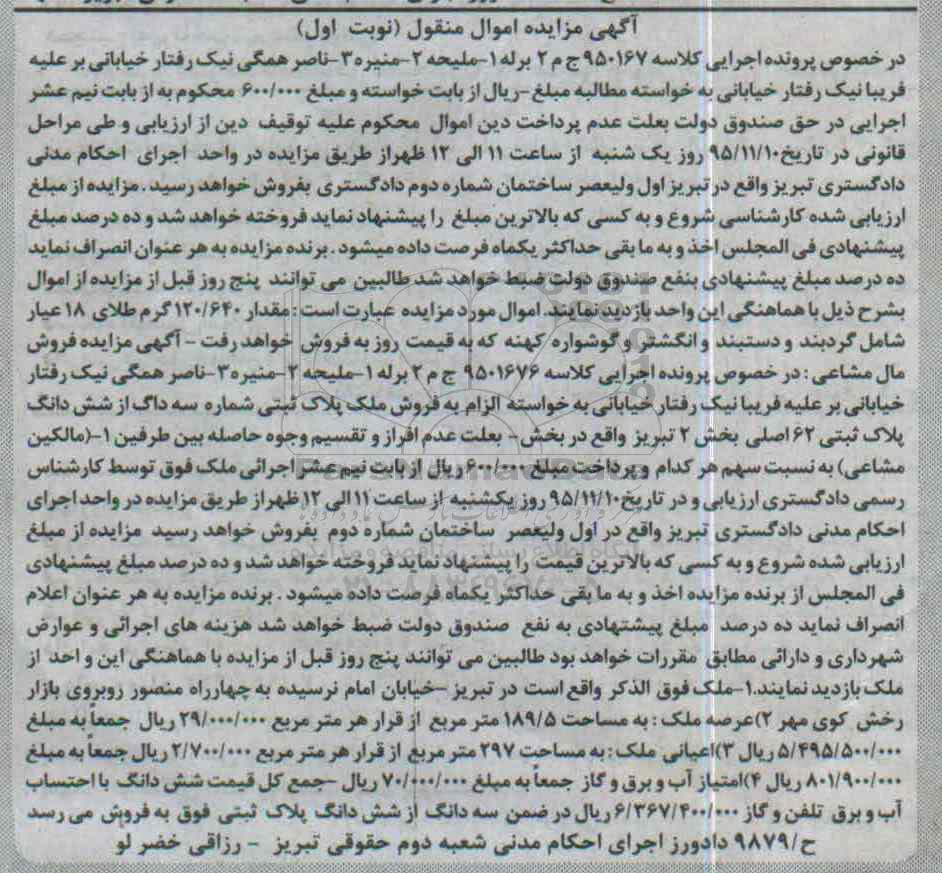 آگهی مزایده اموال منقول (نوبت اول)
در خصوص پرونده اجرایی کلاسه ۹۵۰۱۶۷ ج م ۲ برله ۱-ملیحه ۲-منیره ۳-ناصر همگی نیک رفتار خیابانی بر علیه
فریبا نیک رفتار خیابانی به خواسته مطالبه مبلغ -ریال از بابت خواسته و مبلغ ۶۰۰/۰۰۰ محکوم به از بابت نیم عشر
اجرایی در حق صندوق دولت بعلت عدم پرداخت دین اموال محکوم علیه توقیف دین از ارزیابی و طی مراحل
قانونی در تاریخ ۹۵/۱۱/۱۰ روز یک شنبه از ساعت ۱۱ الی ۱۲ ظهراز طریق مزایده در واحد اجرای احکام مدنی
دادگستری تبریز واقع در تبریز اول ولیعصر ساختمان شماره دوم دادگستری بفروش خواهد رسید . مزایده از مبلغ
ارزیابی شده کارشناسی شروع و به کسی که بالاترین مبلغ را پیشنهاد نماید فروخته خواهد شد و ده درصد مبلغ
پیشنهادی فی المجلس اخذ و به ما بقی حداکثر یکماه فرصت داده میشود . برنده مزایده به هر عنوان انصراف نماید
ده درصد مبلغ پیشنهادی بنفع صندوق دولت ضبط خواهد شد طالبین می توانند پنج روز قبل از مزایده از اموال
بشرح ذیل با هماهنگی این واحد بازدید نمایند. اموال مورد مزایده عبارت است : مقدار ۱۲۰/۶۴۰ گرم طلای ۱۸ عیار
شامل گردبند و دستبند و انگشتر و گوشواره کهنه که به قیمت روز به فروش خواهد رفت - آگهی مزایده فروش
مال مشاعی : در خصوص پرونده اجرایی کلاسه ۹۵۰۱۶۷۶ ج م ۲ برله ۱-ملیحه ۲-منیره ۳-ناصر همگی نیک رفتار
خیابانی بر علیه فریبا نیک رفتار خیابانی به خواسته الزام به فروش ملک پلاک ثبتی شماره سه داگ از شش دانگ
پلاک ثبتی ۶۲ اصلی بخش ۲ تبریز واقع در بخش- بعلت عدم افراز و تقسیم وجوه حاصله بین طرفین ۱-(مالکین
مشاعی) به نسبت سهم هر کدام و پرداخت مبلغ ۶۰۰/۰۰۰ ریال از بابت نیم عشر اجرائی ملک فوق توسط کارشناس
رسمی دادگستری ارزیابی و در تاریخ ۹۵/۱۱/۱۰ روز یکشنبه از ساعت ۱۱ الی ۱۲ ظهر از طریق مزایده در واحد اجرای
احکام مدنی دادگستری تبریز واقع در اول ولیعصر ساختمان شماره دوم بفروش خواهد رسید مزایده از مبلغ
ارزیابی شده شروع و به کسی که بالاترین قیمت را پیشنهاد نماید فروخته خواهد شد و ده درصد مبلغ پیشنهادی
فی المجلس از برنده مزایده اخذ و به ما بقی حداکثر یکماه فرصت داده میشود . برنده مزایده به هر عنوان اعلام
انصراف نماید ده درصد مبلغ پیشنهادی به نفع صندوق دولت ضبط خواهد شد هزینه های اجرائی و عوارض
شهرداری و دارائی مطابق مقررات خواهد بود طالبین می توانند پنج روز قبل از مزایده با هماهنگی این و احد از
ملک بازدید نمایند.۱-ملک فوق الذکر واقع است در تبریز -خیابان امام نرسیده به چهارراه منصور روبروی بازار
رخش کوی مهر ۲)عرصه ملک : به مساحت ۱۸۹/۵ متر مربع از قرار هر متر مربع ۲۹/۰۰۰/۰۰۰ ریال جمعاً به مبلغ
۵/۴۹۵/۵۰۰/۰۰۰ ریال ۳)اعیانی ملک : به مساحت ۲۹۷ متر مربع از قرار هر متر مربع ۲/۷۰۰/۰۰۰ ریال جمعاً به مبلغ
۸۰۱/۹۰۰/۰۰۰ ریال ۴)امتیاز آب و برق و گاز جمعاً به مبلغ ۷۰/۰۰۰/۰۰۰ ریال -جمع کل قیمت شش دانگ با احتساب
آب و برق تلفن و گاز ۶/۳۶۷/۴۰۰/۰۰۰ ریال در ضمن سه دانگ از شش دانگ پلاک ثبتی فوق به فروش می رسد
ح/۹۸۷۹ دادورز اجرای احکام مدنی شعبه دوم حقوقی تبریز - رزاقی خضر لو